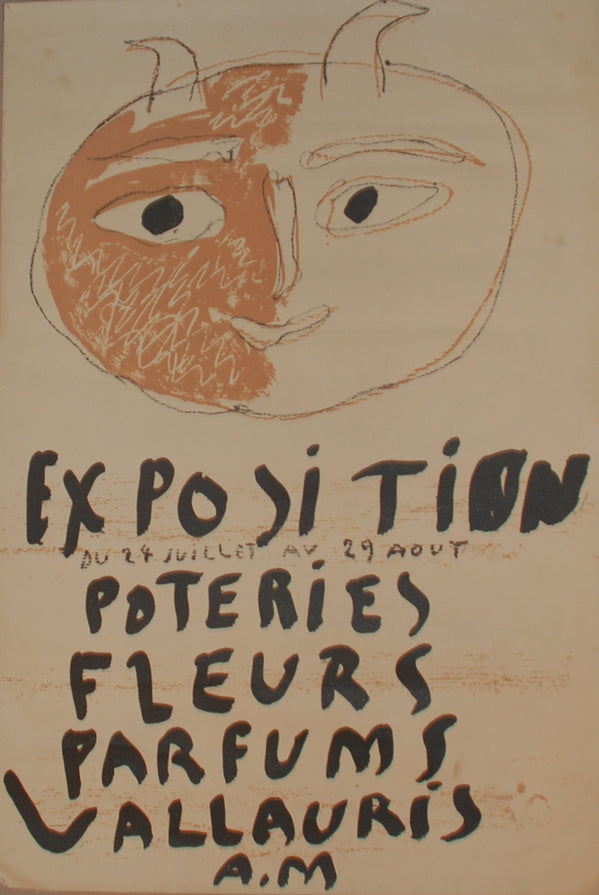 EXPOSITION
DU 24 JUILLET AU 29 AOUT
POTERIES
FLEURS
PARFUMS
VALLAURIS
A.M